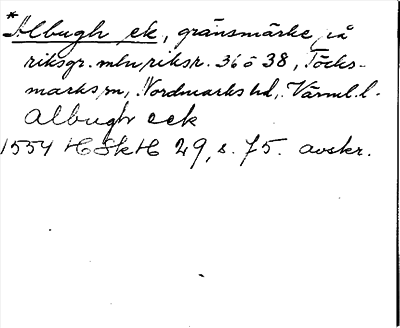 *Albugh ek, gränsmärke på
riksgr. mln riksr. 36 o 38, Töcks-
marks sn, Nordmarks hd, Värml. l.
Albugh eek
1554 HSkH 29, s. 75. avskr.